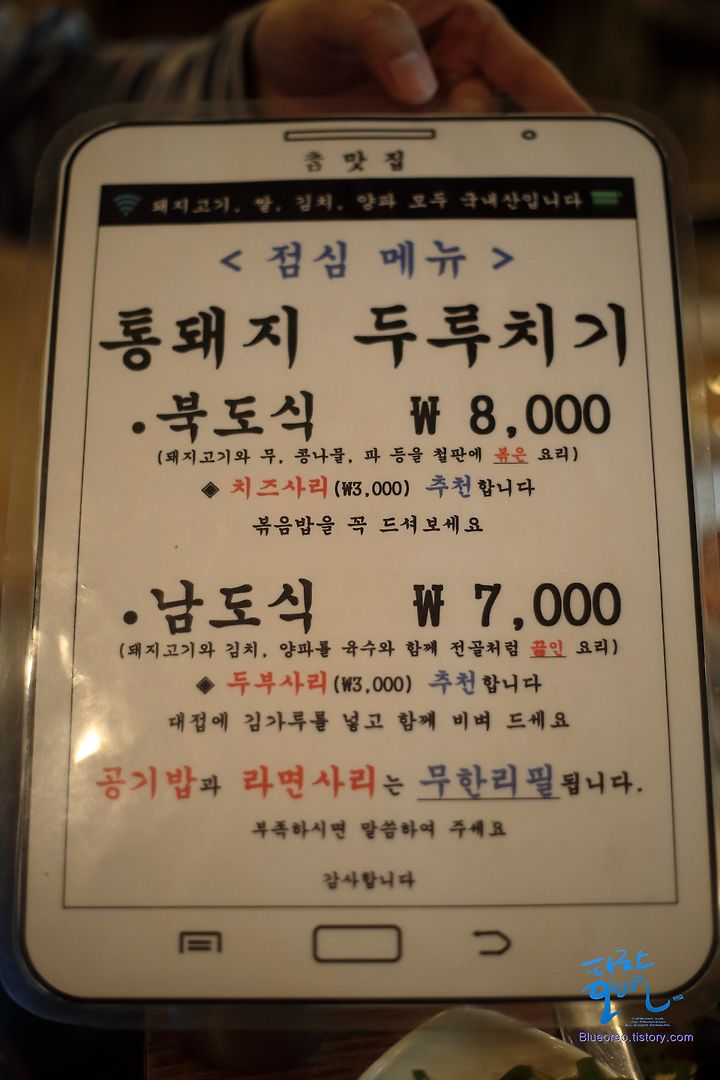 참 맛 집
돼지고기, 쌀, 김치, 양파 모두 국내산입니다
< 점심 메뉴 >
통돼지 두루치기
.북도식 ₩ 8,000
(돼지고기와 무, 콩나물, 파 등을 철판에 볶은 요리)
◈ 치즈사리(₩3,000) 추천합니다
볶음밥을 꼭 드셔보세요
.남도식 ₩ 7,000
(돼지고기와 김치, 양파를 육수와 함께 전골처럼 끓인 요리)
◈ 두부사리(₩3,000) 추천합니다
대접에 김가루를 넣고 함께 비벼 드세요
공기밥과 라면사리는 무한리필됩니다.
부족하시면 말씀하여 주세요
감사합니다
파란
Blueoreo.tistory.com